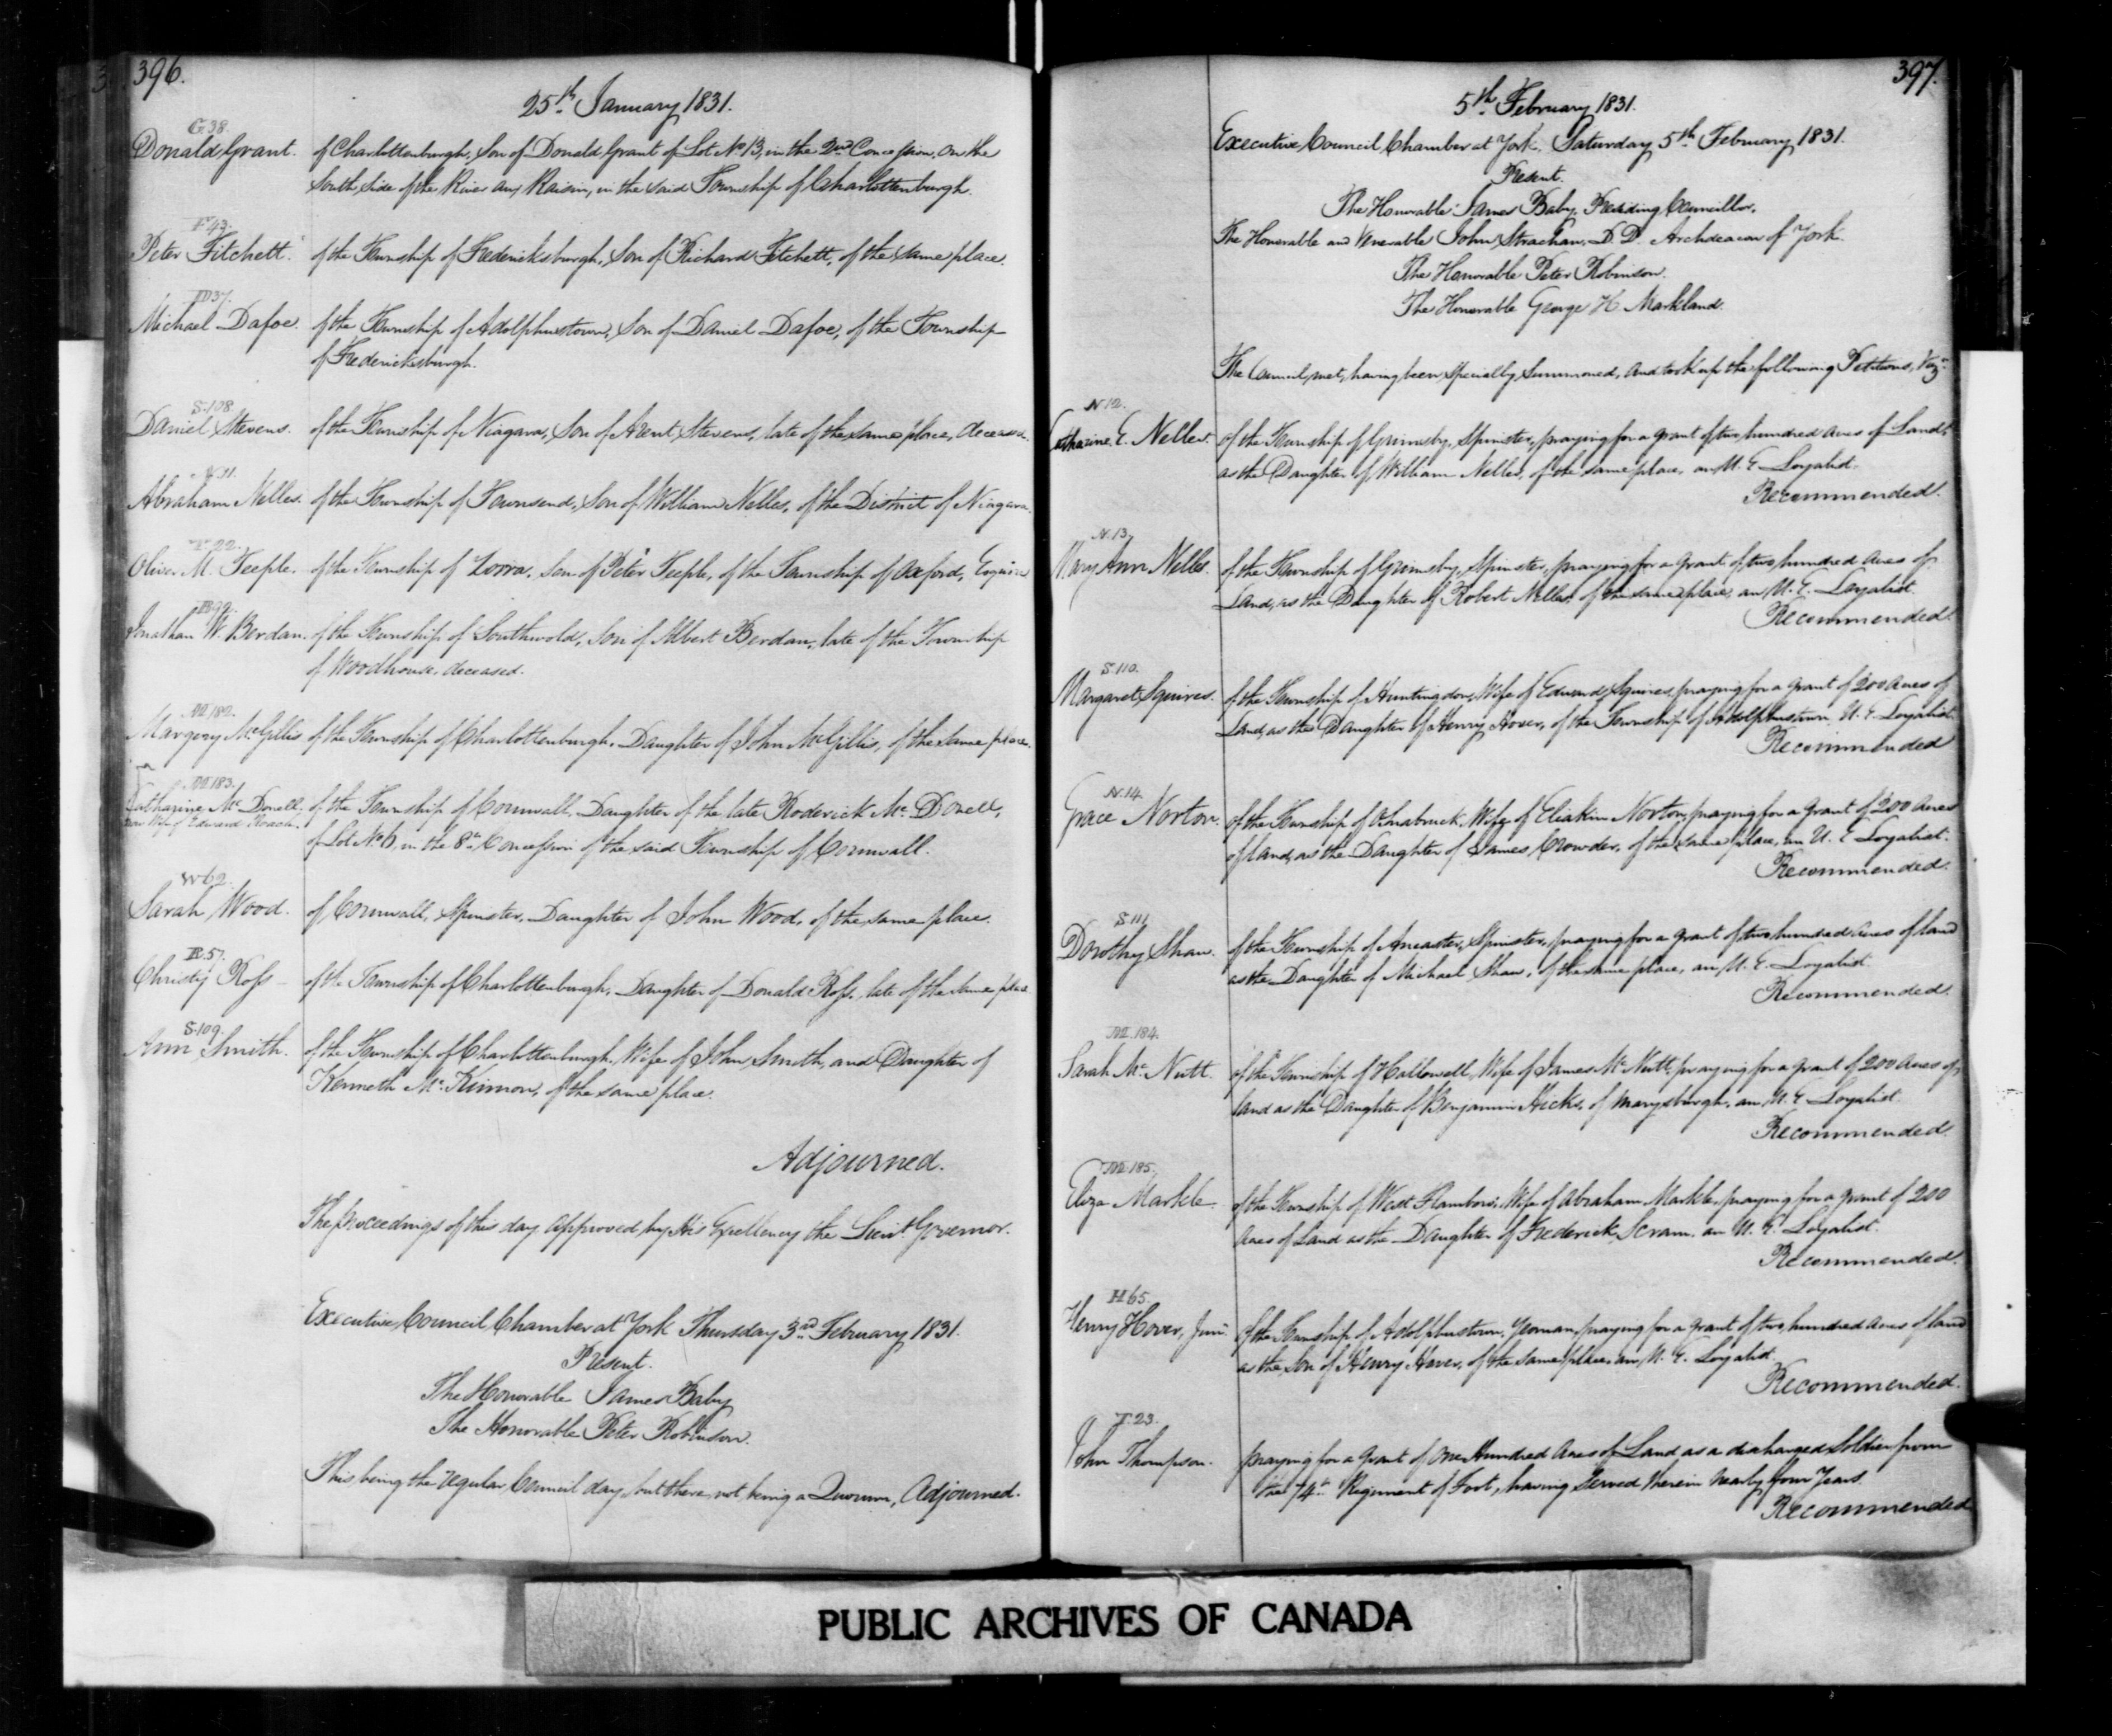 396.
25th January 1831.
G 38.
Donald Grant. of Charlottenburgh, Son of Donald Grant of Lot No 13, in the 2nd Concession, on the
South side of the River aux Raisin, in the said Township of Charlottenburgh.
F 43.
Peter Fitchett. of the Township of Fredericksburgh, Son of Richard Fitchett, of the same place.
D 37.
Michael Dafoe. of the Township of Adolphustown, Son of Daniel Dafoe, of the Township
of Fredericksburgh.
S. 108.
Daniel Stevens. of the Township of Niagara, Son of Arent Stevens, late of the same place, deceased.
N 11.
Abraham Nelles. of the Township of Townsend, Son of William Nelles, of the District of Niagara.
T. 22.
Oliver M. Teeple. of the Township of Zorra, Son of Peter Teeple, of the Township of Oxford, Esquire
B 92.
Jonathan W. Berdan. of the Township of Southwold, Son of Albert Berdan, late of the Township
of Woodhouse, deceased.
M 182.
Margery McGillis of the Township of Charlottenburgh, Daughter of John McGillis, of the same place.
M 183.
Catharine Mc Donell. of the Township of Cornwall, Daughter of the late Roderick Mc Donell,
now Wife of Edward Roach. of Lot No 6, in the 8th Concession of the said Township of Cornwall.
W 62.
Sarah Wood. of Cornwall, Spinster, Daughter of John Wood, of the same place.
R. 57.
Christy Ross of the Township of Charlottenburgh, Daughter of Donald Ross, late of the same place
S. 109.
Ann Smith. of the Township of Charlottenburgh, Wife of John Smith, and Daughter of
Kenneth Mc Kinnon, of the same place.
Adjourned.
The proceedings of this day approved by His Excellency the Lieut Governor.
Executive Council Chamber at York Thursday 3rd February 1831.
Present.
The Honorable James Baby
The Honorable Peter Robinson.
This being the regular Council day but there not being a Quorum, Adjourned.
397.
5th February 1831.
Executive Council Chamber at York, Saturday 5th February 1831.
Present.
The Honorable James Baby, Presiding Councillor,
The Honorable and Venerable John Strachan, D. D. Archdeacon of York.
The Honorable Peter Robinson.
The Honorable George H. Markland.
The Council met, having been specially Summoned, and took up the following Petitions, Viz.
N 12.
Catharine E. Nelles. of the Township of Grimsby, Spinster, praying for a grant of two hundred acres of Land,
as the Daughter of William Nelles, of the same place, an U. E Loyalist.
Recommended.
N. 13.
Mary Ann Nelles. of the Township of Grimsby, Spinster, praying for a grant of two hundred acres of
Land, as the Daughter of Robert Nelles, of the same place, an U. E. Loyalist.
Recommended.
S. 110.
Margaret Squires. of the Township of Huntingdon, Wife of Edward Squires, praying for a grant of 200 acres of
Land, as the Daughter of Henry Hover, of the Township of Adolphustown, U. E. Loyalist.
Recommended
N. 14.
Grace Norton. of the Township of Osnabruck, Wife of Eliakim Norton, praying for a grant of 200 acres
of land, as the Daughter of James Crowder, of the same place, an U. E Loyalist.
Recommended.
S. 111.
Dorothy Shaw. of the Township of Ancaster, Spinster, praying for a grant of two hundred acres of land
as the Daughter of Michael Shaw, of the same place, an U. E. Loyalist.
Recommended.
M. 184.
Sarah Mc Nutt. of the Township of Hallowell, Wife of James Mc Nutt, praying for a grant of 200 acres of
land as the Daughter of Benjamin Hicks, of Marysburgh, an U. E Loyalist.
Recommended.
M. 185.
Eliza Markle of the Township of West Flamboro', Wife of Abraham Markle, praying for a grant of 200
acres of Land as the Daughter of Frederick Scram, an U. E. Loyalist.
Recommended.
H 65.
Henry Hover, Junr. of the Township of Adolphustown, Yeoman, praying for a grant of two hundred acres of land
as the Son of Henry Hover, of the same place, an U. E. Loyalist.
Recommended.
T. 23.
John Thompson. praying for a grant of One Hundred Acres of Land as a discharged Soldier from
the 74th Regiment of Foot, having served therein nearly four Years.
Recommended
PUBLIC ARCHIVES OF CANADA